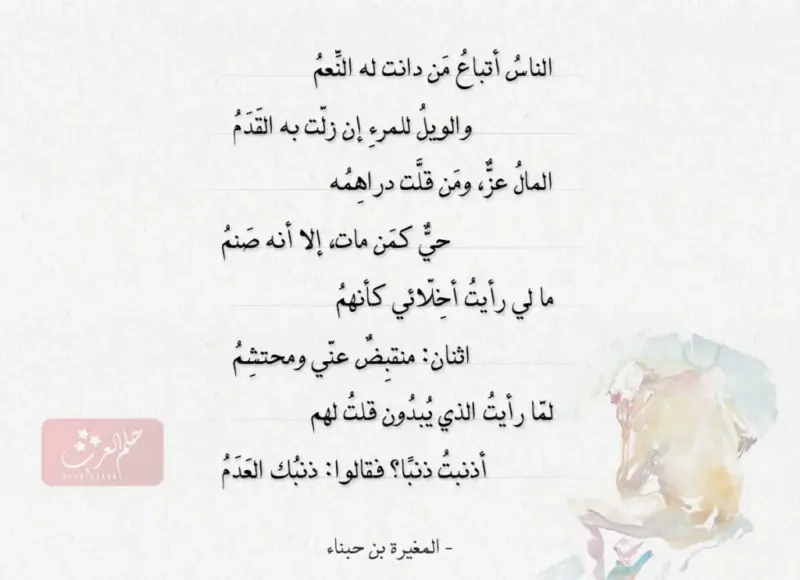 الناسُ أتباعُ مَن دانت له النِّعمُ
والويلُ للمرءِ إن زلّت به القَدَمُ
المالُ عزٌّ، ومَن قلَّت دراهِمُه
حيٌّ كمَن مات، إلا أنه صَنمُ
ما لي رأيتُ أخِلّائي كأنهمُ
اثنان: منقبِضٌ عنّي ومحتشِمُ
لمّا رأيتُ الذي يُبدُون قلتُ لهم
أذنبتُ ذنبًا؟ فقالوا: ذنبُك العَدَمُ
حلم العرب
- المغيرة بن حبناء